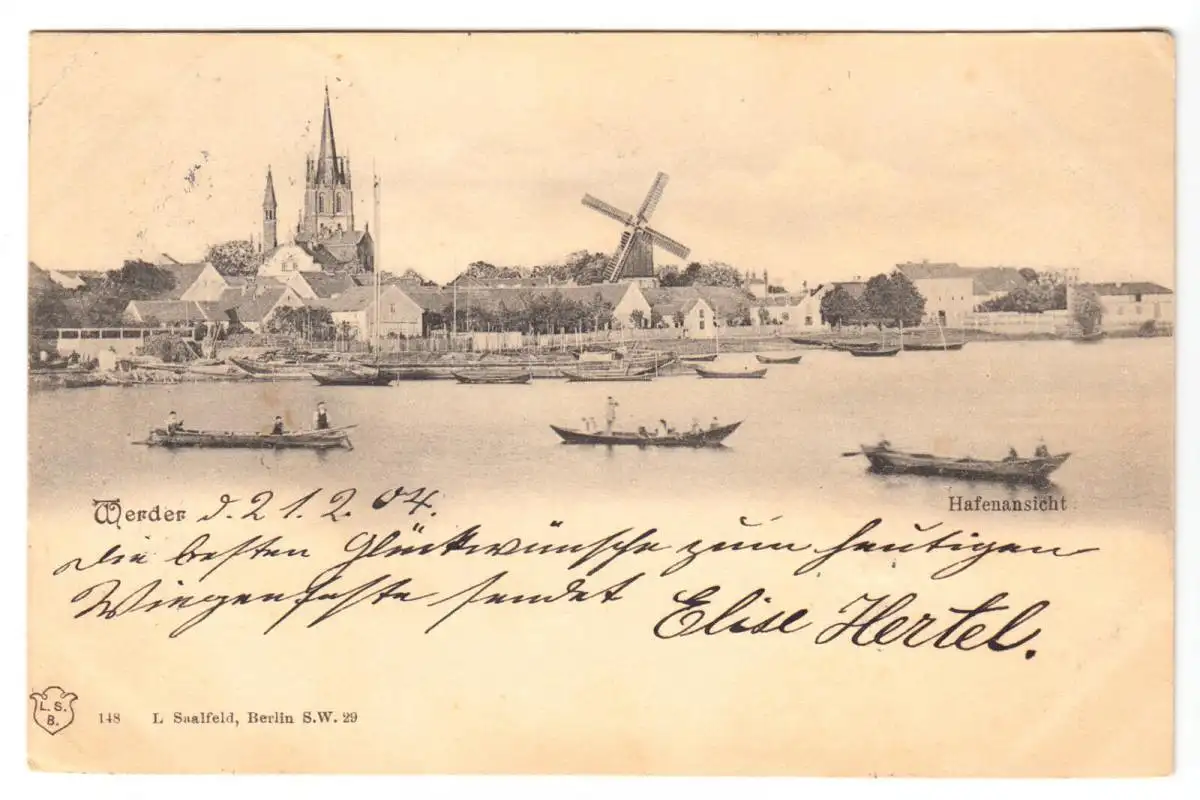 Werder d. 21. 2. 04.
Hafenansicht
Die besten Glückwünsche zum heutigen
Wiegenfeste sendet Elise Hertel.
L. S.
B.
148 L Saalfeld, Berlin S.W. 29